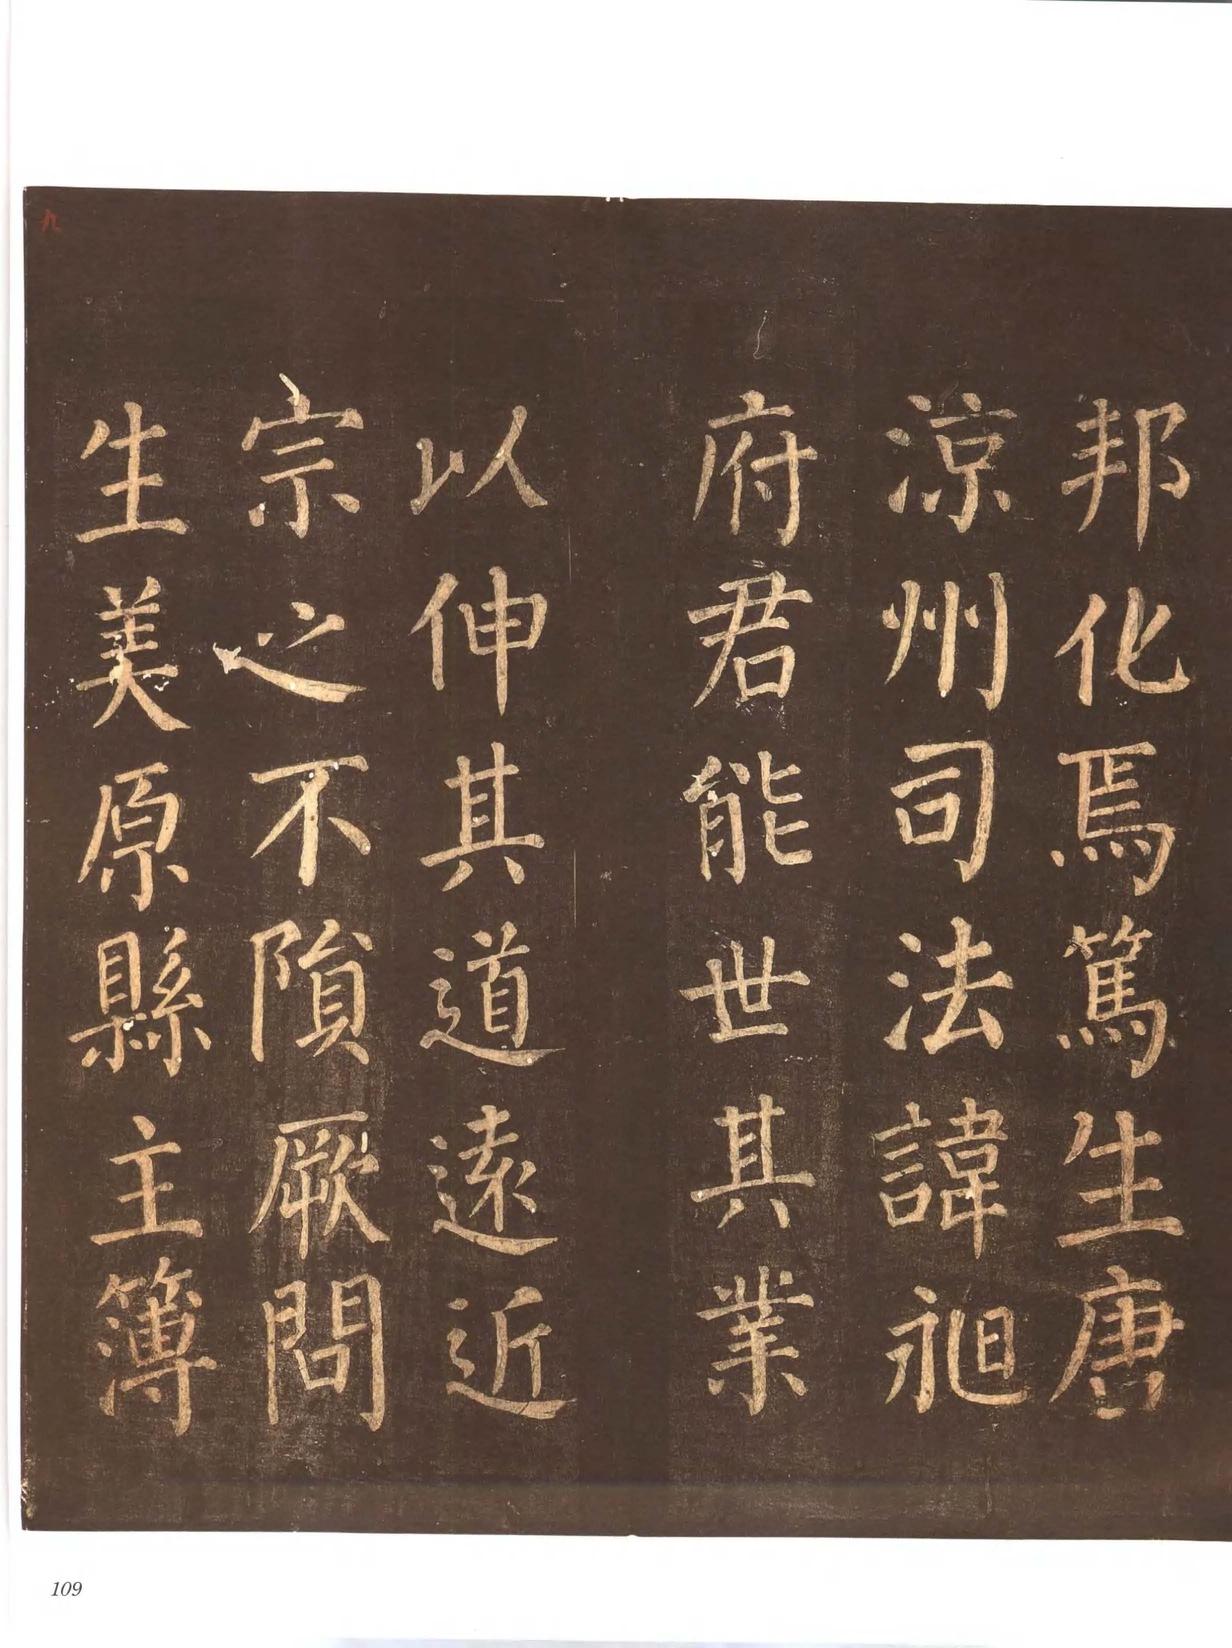 邦化焉篤生唐
涼州司法諱昶
府君能世其業
以伸其道遠近
宗之不隕厥問
生美原縣主簿
九
109